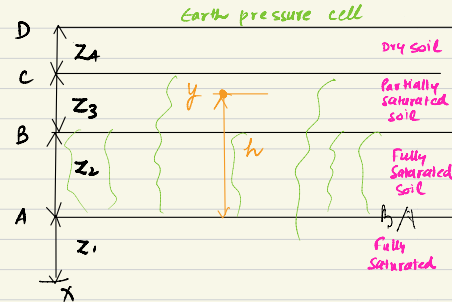 Earth pressure cell
D
Z4
Dry soil
C
y
Partially
saturated
soil
Z3
B
h
Z2
Fully
Saturated
soil
A
Z1
Fully
Saturated
X